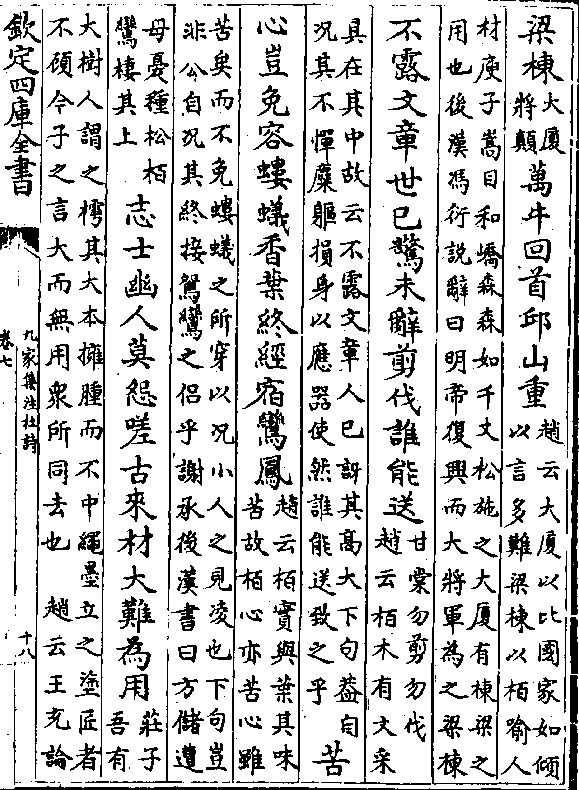 梁棟大厦將顛萬牛回首邱山重趙云大厦以比國家如傾以言多難梁棟以栢喻人
材庾子嵩目和嶠森森如千丈松施之大厦有棟梁之
用也後漢馮衍説辭曰明帝復興而大將軍為之梁棟
不露文章世已驚未辭剪伐誰能送甘棠勿剪勿伐趙云栢木有文采
具在其中故云不露文章人已訝其髙大下句葢自
况其不憚糜軀損身以應器使然誰能送致之乎 苦
心豈免容螻蟻香葉終經宿鸞鳳趙云栢實與葉其味苦故栢心亦苦心雖
苦矣而不免螻蟻之所穿以况小人之見凌也下句豈
非公自况其終接鴛鸞之侣乎謝承後漢書曰方儲遭
母憂種松栢鸞棲其上 志士幽人莫怨嗟古來材大難為用莊子吾有
大樹人謂之樗其大本擁腫而不中繩墨立之塗匠者
不顧今子之言大而無用衆所同去也 趙云王充論
欽定四庫全書
九家集注杜詩
卷七
十八